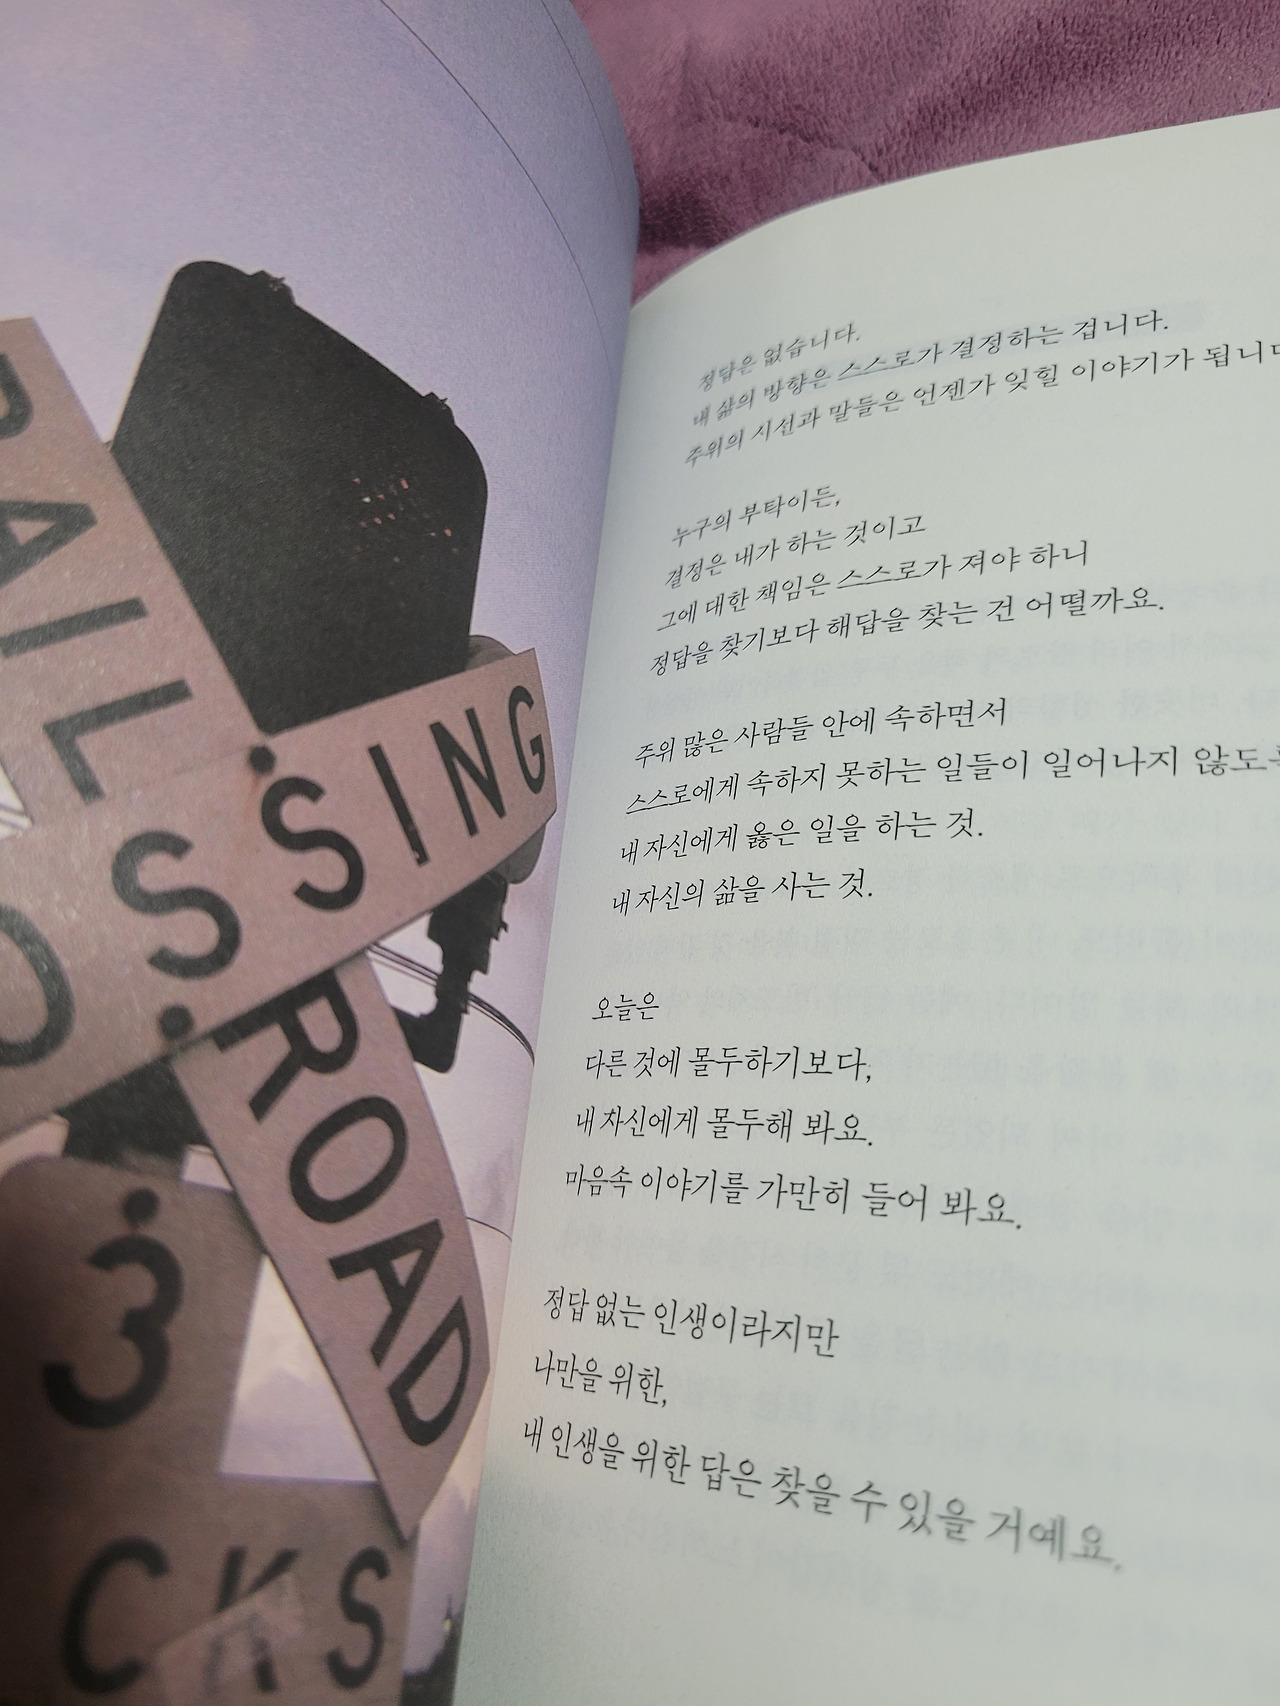 RAIL
SSING
ROAD
3
CKS
정답은 없습니다.
내 삶의 방향은 스스로가 결정하는 겁니다.
주위의 시선과 말들은 언젠가 잊힐 이야기가 됩니다
누구의 부탁이든,
결정은 내가 하는 것이고
그에 대한 책임은 스스로가 져야 하니
정답을 찾기보다 해답을 찾는 건 어떨까요.
주위 많은 사람들 안에 속하면서
스스로에게 속하지 못하는 일들이 일어나지 않도록
내 자신에게 옳은 일을 하는 것.
내 자신의 삶을 사는 것.
오늘은
다른 것에 몰두하기보다,
내 자신에게 몰두해 봐요.
마음속 이야기를 가만히 들어 봐요.
정답 없는 인생이라지만
나만을 위한,
내 인생을 위한 답은 찾을 수 있을 거예요.